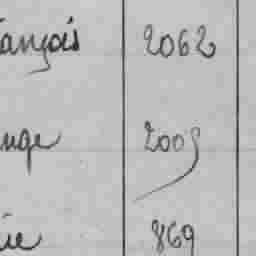 ançois 2062
nge 2005
ie 869